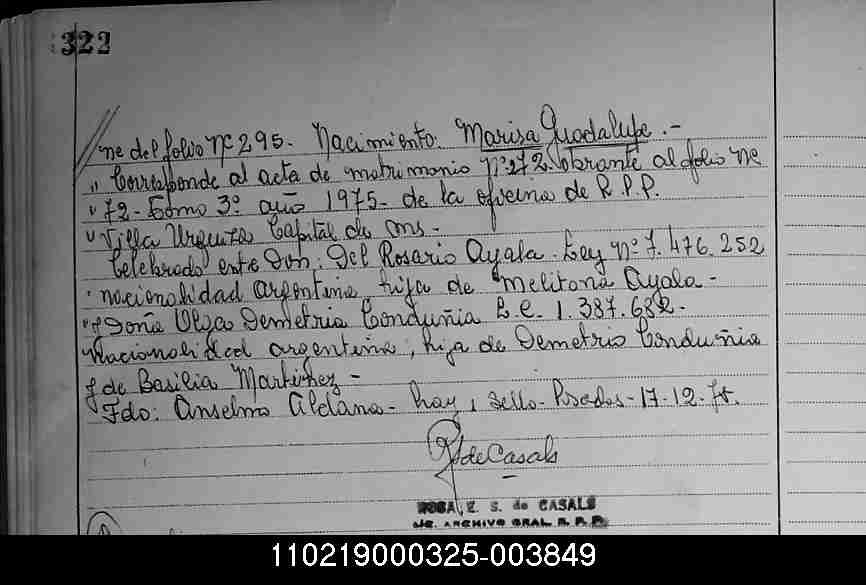 322
ne del folio Nº 295. Nacimiento: Marisa Guadalupe.-
" Corresponde al acta de matrimonio Nº 272. obrante al folio Nº
" 72- Tomo 3º año 1975- de la oficina de R.P.P.
" Villa Urquiza Capital de Mns-
Celebrado entre Don: Del Rosario Ayala. Ley Nº 7.476.252
nacionalidad argentina hijo de Melitona Ayala-
" y Doña Olga Demetria Conduñia L.C. 1.387.682-
Nacionalidad argentina, hija de Demetrio Conduñia
y de Basilia Martinez-
Fdo: Anselmo Aldana- hay 1 sello- Posadas- 17-12-75.
de Casals
ROSA E. S. de CASALS
ARCHIVO GRAL. R. P. P.
110219000325-003849